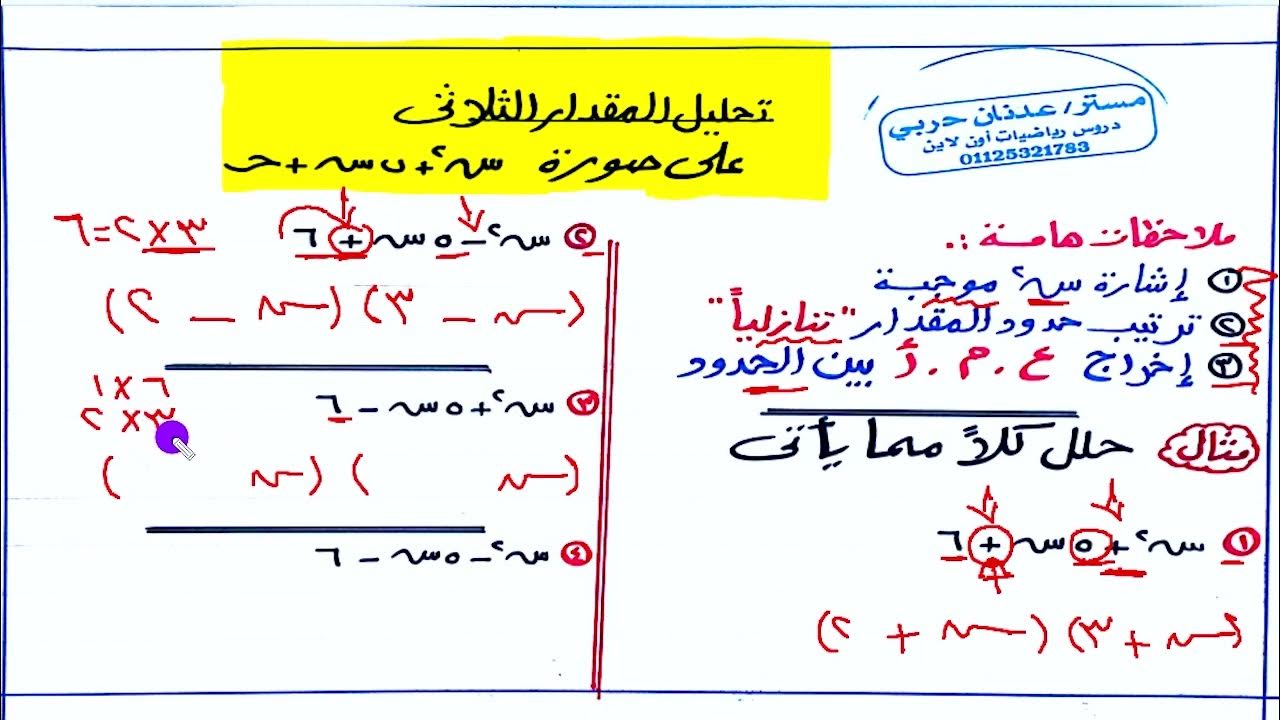 تحليل المقدار الثلاثى
على صورة س٢ + ب س + حـ
مستر/ عدنان حربي
دروس رياضيات أون لاين
01125321783
ملاحظات هامة :.
١ إشارة س٢ موجبة
٢ ترتيب حدود المقدار "تنازلياً"
٣ إخراج ع . م . أ بين الحدود
مثال حلل كلاً مما يأتى
١ س٢ + ٥ س + ٦
(س + ٣) (س + ٢)
٢ س٢ - ٥ س + ٦
٣ × ٢ = ٦
(س - ٣) (س - ٢)
٣ س٢ + ٥ س - ٦
٦ × ١
٣ × ٢
(س ) (س )
٤ س٢ - ٥ س - ٦